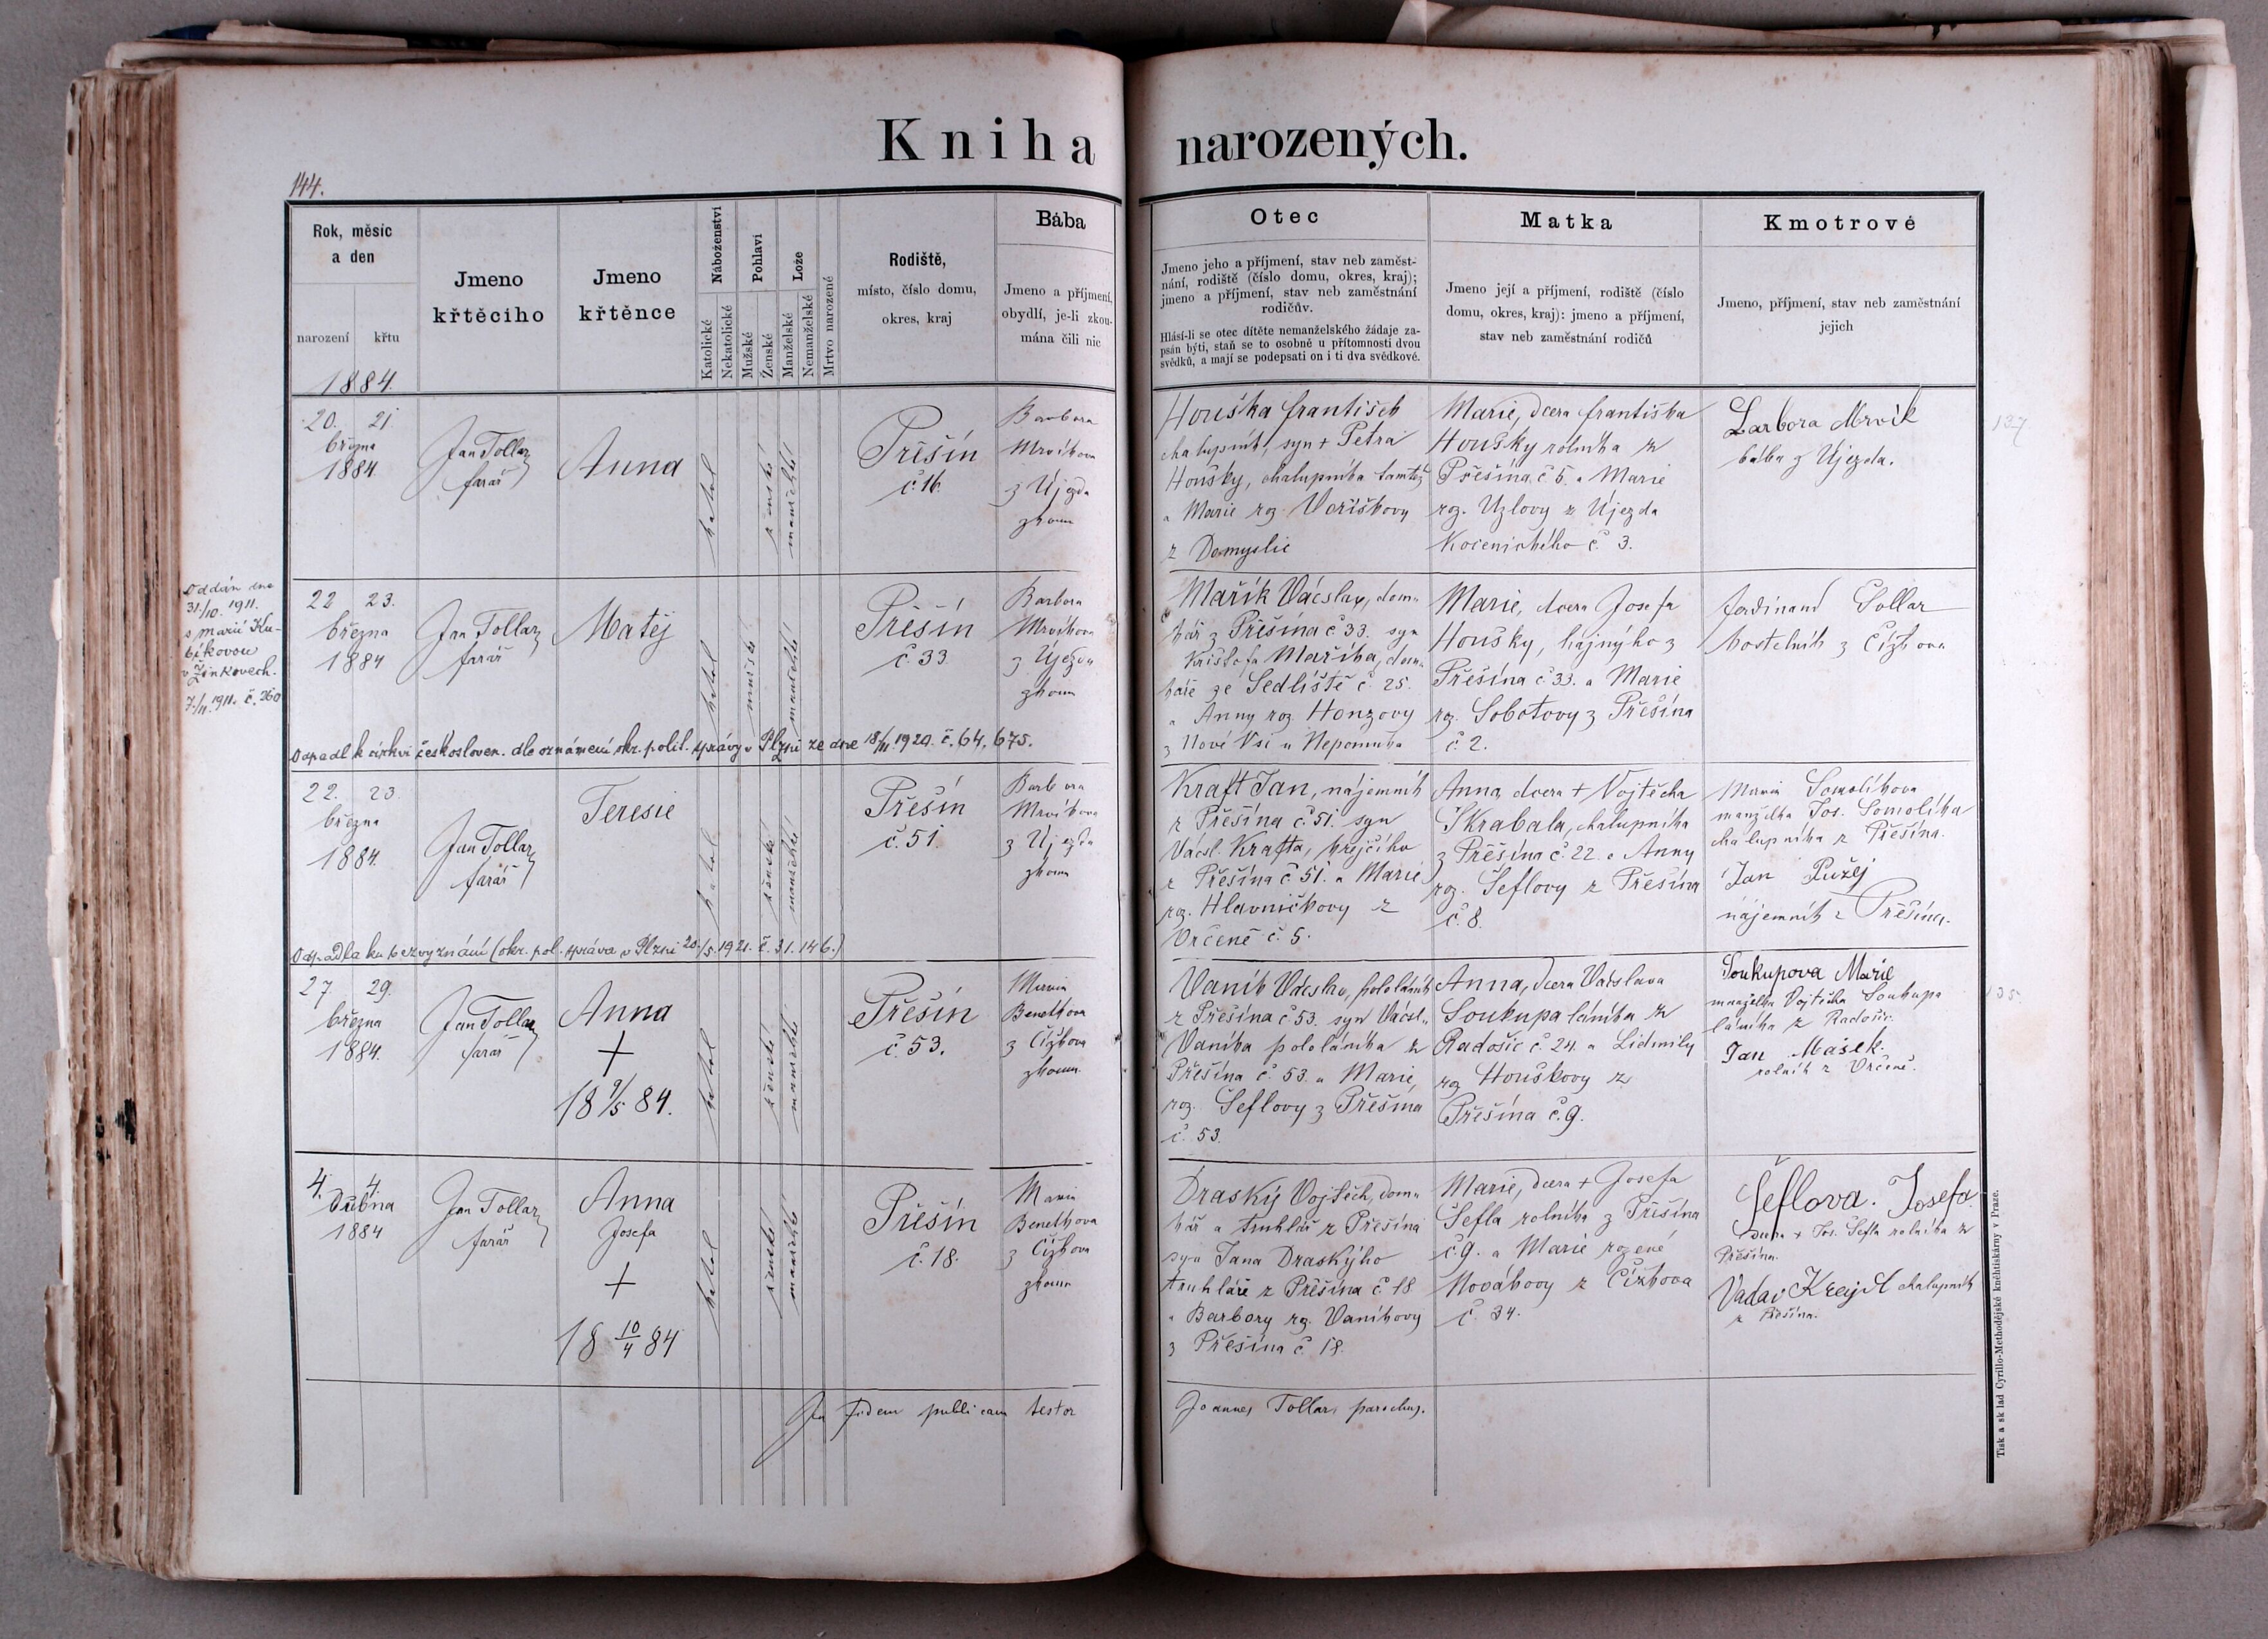 Kniha narozených.
144.
Rok, měsíc
a den
narození křtu
1884.
Jmeno
křtěcího
Jmeno
křtěnce
Náboženství
Katolické
Nekatolické
Pohlaví
Mužské
Ženské
Lože
Manželské
Nemanželské
Mrtvo narozené
Rodiště,
místo, číslo domu,
okres, kraj
Bába
Jmeno a příjmení,
obydlí, je-li zkou-
mána čili nic
Otec
Jmeno jeho a příjmení, stav neb zaměst-
nání, rodiště (číslo domu, okres, kraj);
jmeno a příjmení, stav neb zaměstnání
rodičův.
Hlásí-li se otec dítěte nemanželského žádaje za-
psán býti, staň se to osobně u přítomnosti dvou
svědků, a mají se podepsati on i ti dva svědkové.
Matka
Jmeno její a příjmení, rodiště (číslo
domu, okres, kraj): jmeno a příjmení,
stav neb zaměstnání rodičů
Kmotrové
Jmeno, příjmení, stav neb zaměstnání
jejich
20. 21.
března
1884.
Jan Tollar
farář
Anna
katol
ženské
manželské
Přešín
č. 16.
Barbora
Mrvíkova
z Újezda
zkoum
Houška František
chalupník, syn + Petra
Houšky, chalupníka tamtéž
a Marie roz. Voříškovy
z Domyslic
Marie, dcera Františka
Houšky rolníka z
Přešína č 5. a Marie
roz. Uzlovy z Újezda
Kočenického č 3.
Barbora Mrvík
bába z Újezda.
137
Oddán dne
31./10. 1911.
s Marií Ku-
bíkovou
v Žinkovech.
7./11. 1911. č. 360
22 23.
března
1884
Jan Tollar
farář
Matěj
katol
mužské
manželské
Přešín
č. 33.
Barbora
Mrvíkova
z Újezda
zkoum
Mařík Václav, dom-
kář z Přešína č 33. syn
Krištofa Maříka, dom-
káře ze Sedliště č 25.
a Anny roz. Honzovy
z Nové Vsi u Nepomuka
Marie, dcera Josefa
Houšky, hajného z
Přešína č 33. a Marie
roz. Sobotovy z Přešína
č 2.
Ferdinand Tollar
kostelník z Čížkova
Odpadl k církvi českosloven. dle oznámení okr. polit. správy v Plzni ze dne 18/11. 1920. č. 64.675.
22. 23.
března
1884.
Jan Tollar
farář
Teresie
katol
ženské
manželské
Přešín
č. 51.
Barbora
Mrvíkova
z Újezda
zkoum
Kraft Jan, nájemník
z Přešína č 51. syn
Václ. Krafta, krejčího
z Přešína č 51. a Marie
roz. Hlavničkovy z
Vrčeně č. 5.
Anna, dcera + Vojtěcha
Škrabala, chalupníka
z Přešína č. 22. a Anny
roz. Šeflovy z Přešína
č. 8.
Marie Somolíkova
manželka Jos. Somolíka
chalupníka z Přešína.
Jan Pužej
nájemník z Přešína.
Odpadla ku bezvyznání (okr. pol. správa v Plzni 20./5. 1921. č. 31.146.)
27. 29.
března
1884.
Jan Tollar
farář
Anna
+
18 9/5 84.
katol
ženské
manželské
Přešín
č. 53.
Marie
Benethova
z Čížkova
zkoum.
Vaník Václav, pololáník
z Přešína č 53. syn Václ.
Vaníka pololáníka z
Přešína č. 53. a Marie,
roz. Šeflovy z Přešína
č. 53.
Anna, dcera Václava
Soukupa láníka z
Radošic č. 24. a Lidmily
roz. Houškovy z
Přešína č. 9.
Soukupova Marie
manželka Vojtěcha Soukupa
láníka z Radošic.
Jan Mašek.
rolník z Vrčeně.
135
4. 4.
Dubna
1884
Jan Tollar
farář
Anna
Josefa
+
18 10/4 84
katol
ženské
manželské
Přešín
č. 18.
Marie
Benethova
z Čížkova
zkoum
Draský Vojtěch, dom-
kář a truhlář z Přešína
syn Jana Draskýho
truhláře z Přešína č 18.
a Barbory roz. Vaníkovy
z Přešína č 18.
Marie, dcera + Josefa
Šefla rolníka z Přešína
č. 9. a Marie rozené
Novákovy z Čížkova
č. 34.
Šeflova. Josefa.
dcera + Jos. Šefla rolníka z
Přešína.
Václav Krejčí chalupník
z Přešína.
In fidem publicam testor
Joannes Tollar, parochus.
Tisk a sklad Cyrillo-Methodějské knihtiskárny v Praze.